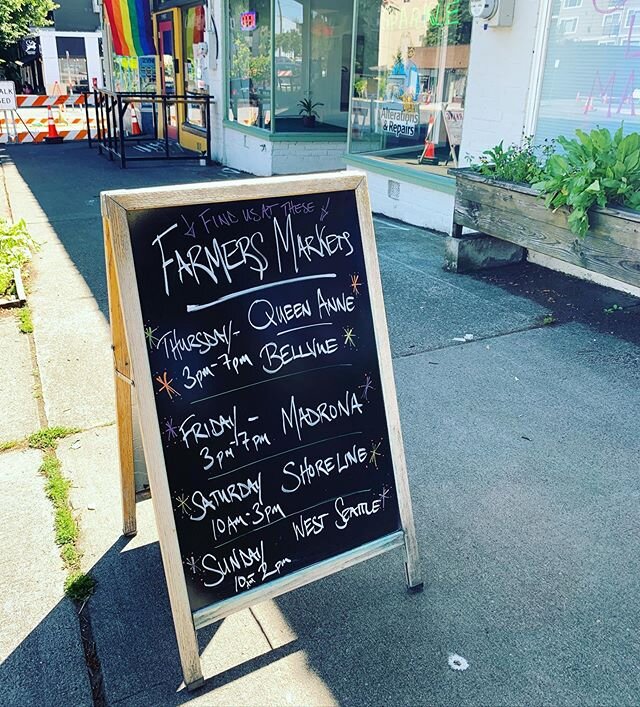 FIND US AT THESE
FARMERS MARKETS
THURSDAY- QUEEN ANNE
3pm-7pm BELLVUE
FRIDAY- MADRONA
3pm-7pm
SATURDAY SHORELINE
10AM-3PM
SUNDAY WEST SEATTLE
10am-2pm
Alterations
& Repairs